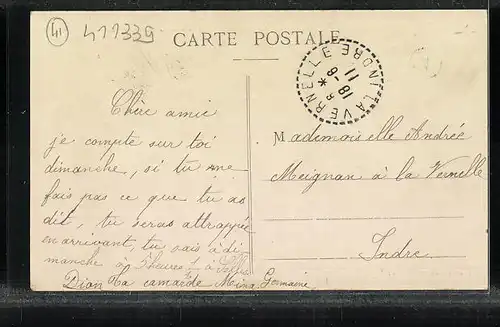 41
411339
CARTE POSTALE
LAVERNELLE INDRE
18 -8
11
Chère amie
je compte sur toi
dimanche, si tu me
fais pas ce que tu as
dit, tu seras attrappée
en arrivant, tu sais à di-
manche à 3 heures ½ à
Ta camarde Mina Germaine
Mademoiselle Andrée
Meignan à la Vernelle
Indre